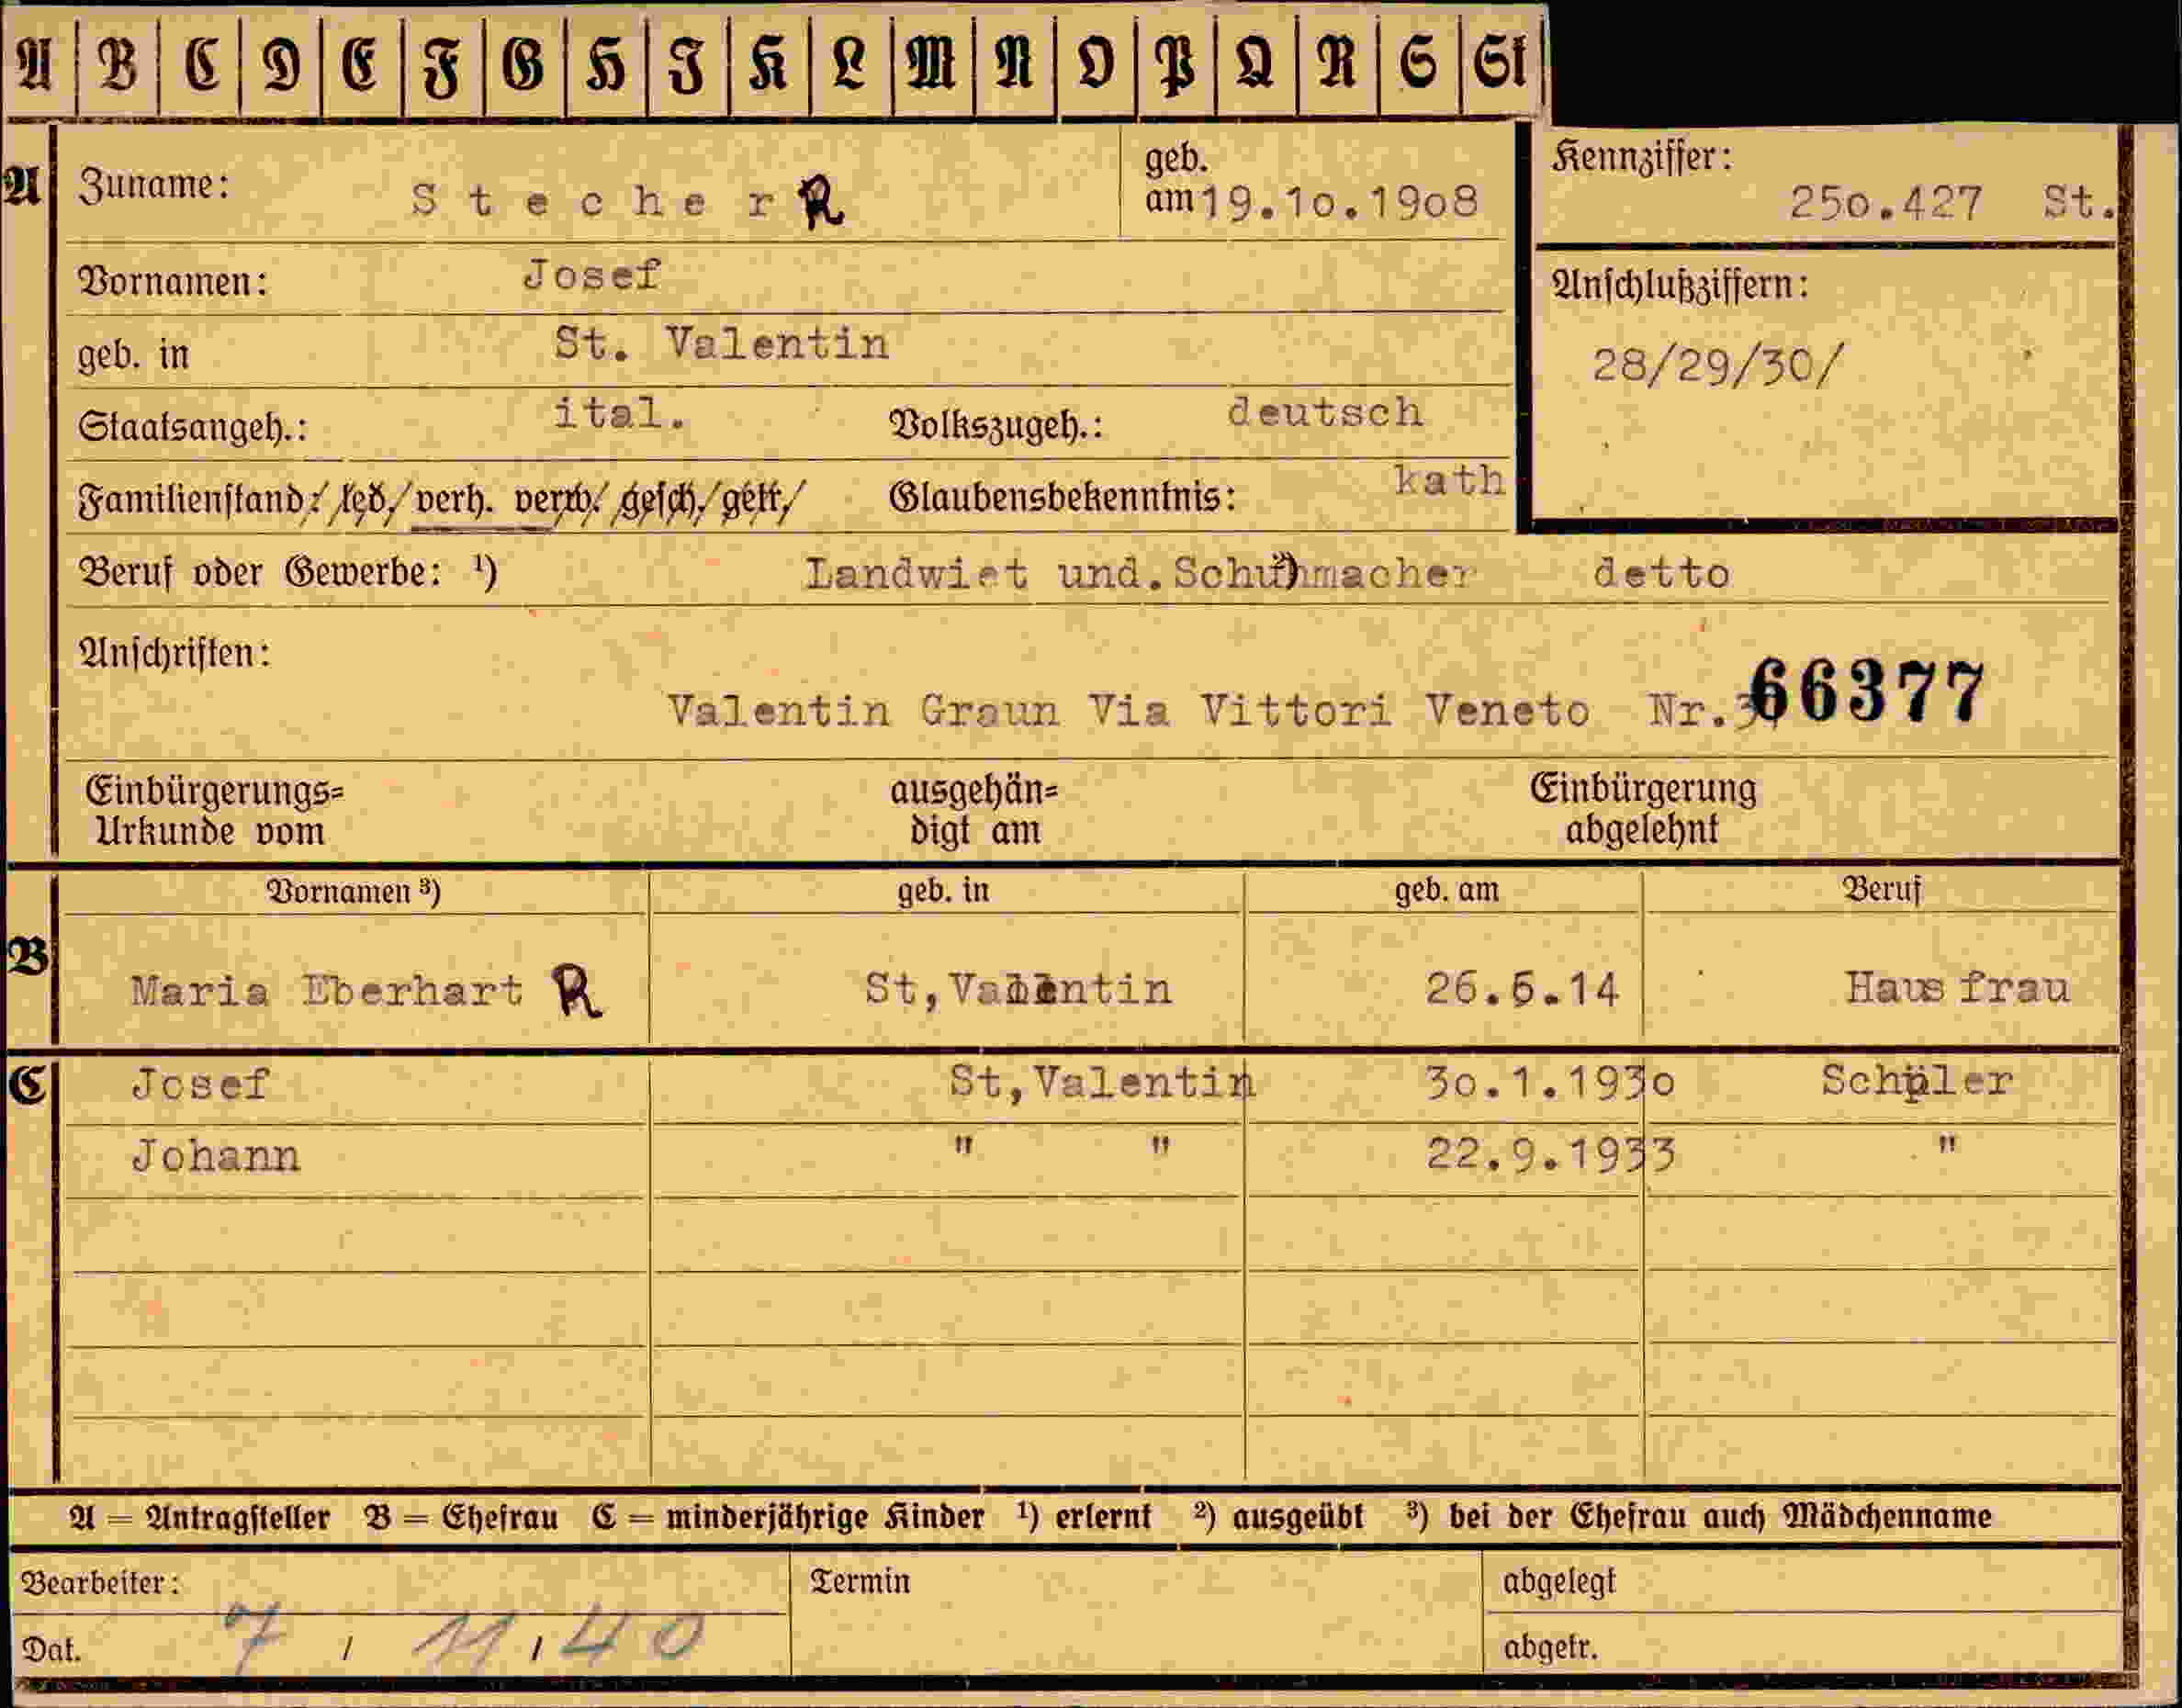 A B C D E F G H I K L M N O P Q R S St
A Zuname: Stecher R geb. am 19.10.1908 Kennziffer: 250.427 St.
Vornamen: Josef Anschlußziffern:
geb. in St. Valentin 28/29/30/
Staatsangeh.: ital. Volkszugeh.: deutsch
Familienstand: led. verh. verw. gesch. getr. Glaubensbekenntnis: kath
Beruf oder Gewerbe: ¹) Landwirt und.Schuhmacher detto
Anschriften:
Valentin Graun Via Vittori Veneto Nr. 66377
Einbürgerungs= ausgehän= Einbürgerung
Urkunde vom digt am abgelehnt
Vornamen ³) geb. in geb. am Beruf
B Maria Eberhart R St,Valentin 26.6.14 Hausfrau
C Josef St,Valentin 30.1.1930 Schüler
Johann " " 22.9.1933 "
A = Antragsteller B = Ehefrau C = minderjährige Kinder ¹) erlernt ²) ausgeübt ³) bei der Ehefrau auch Mädchenname
Bearbeiter: Termin abgelegt
Dat. 7 / 11 / 40 abgetr.